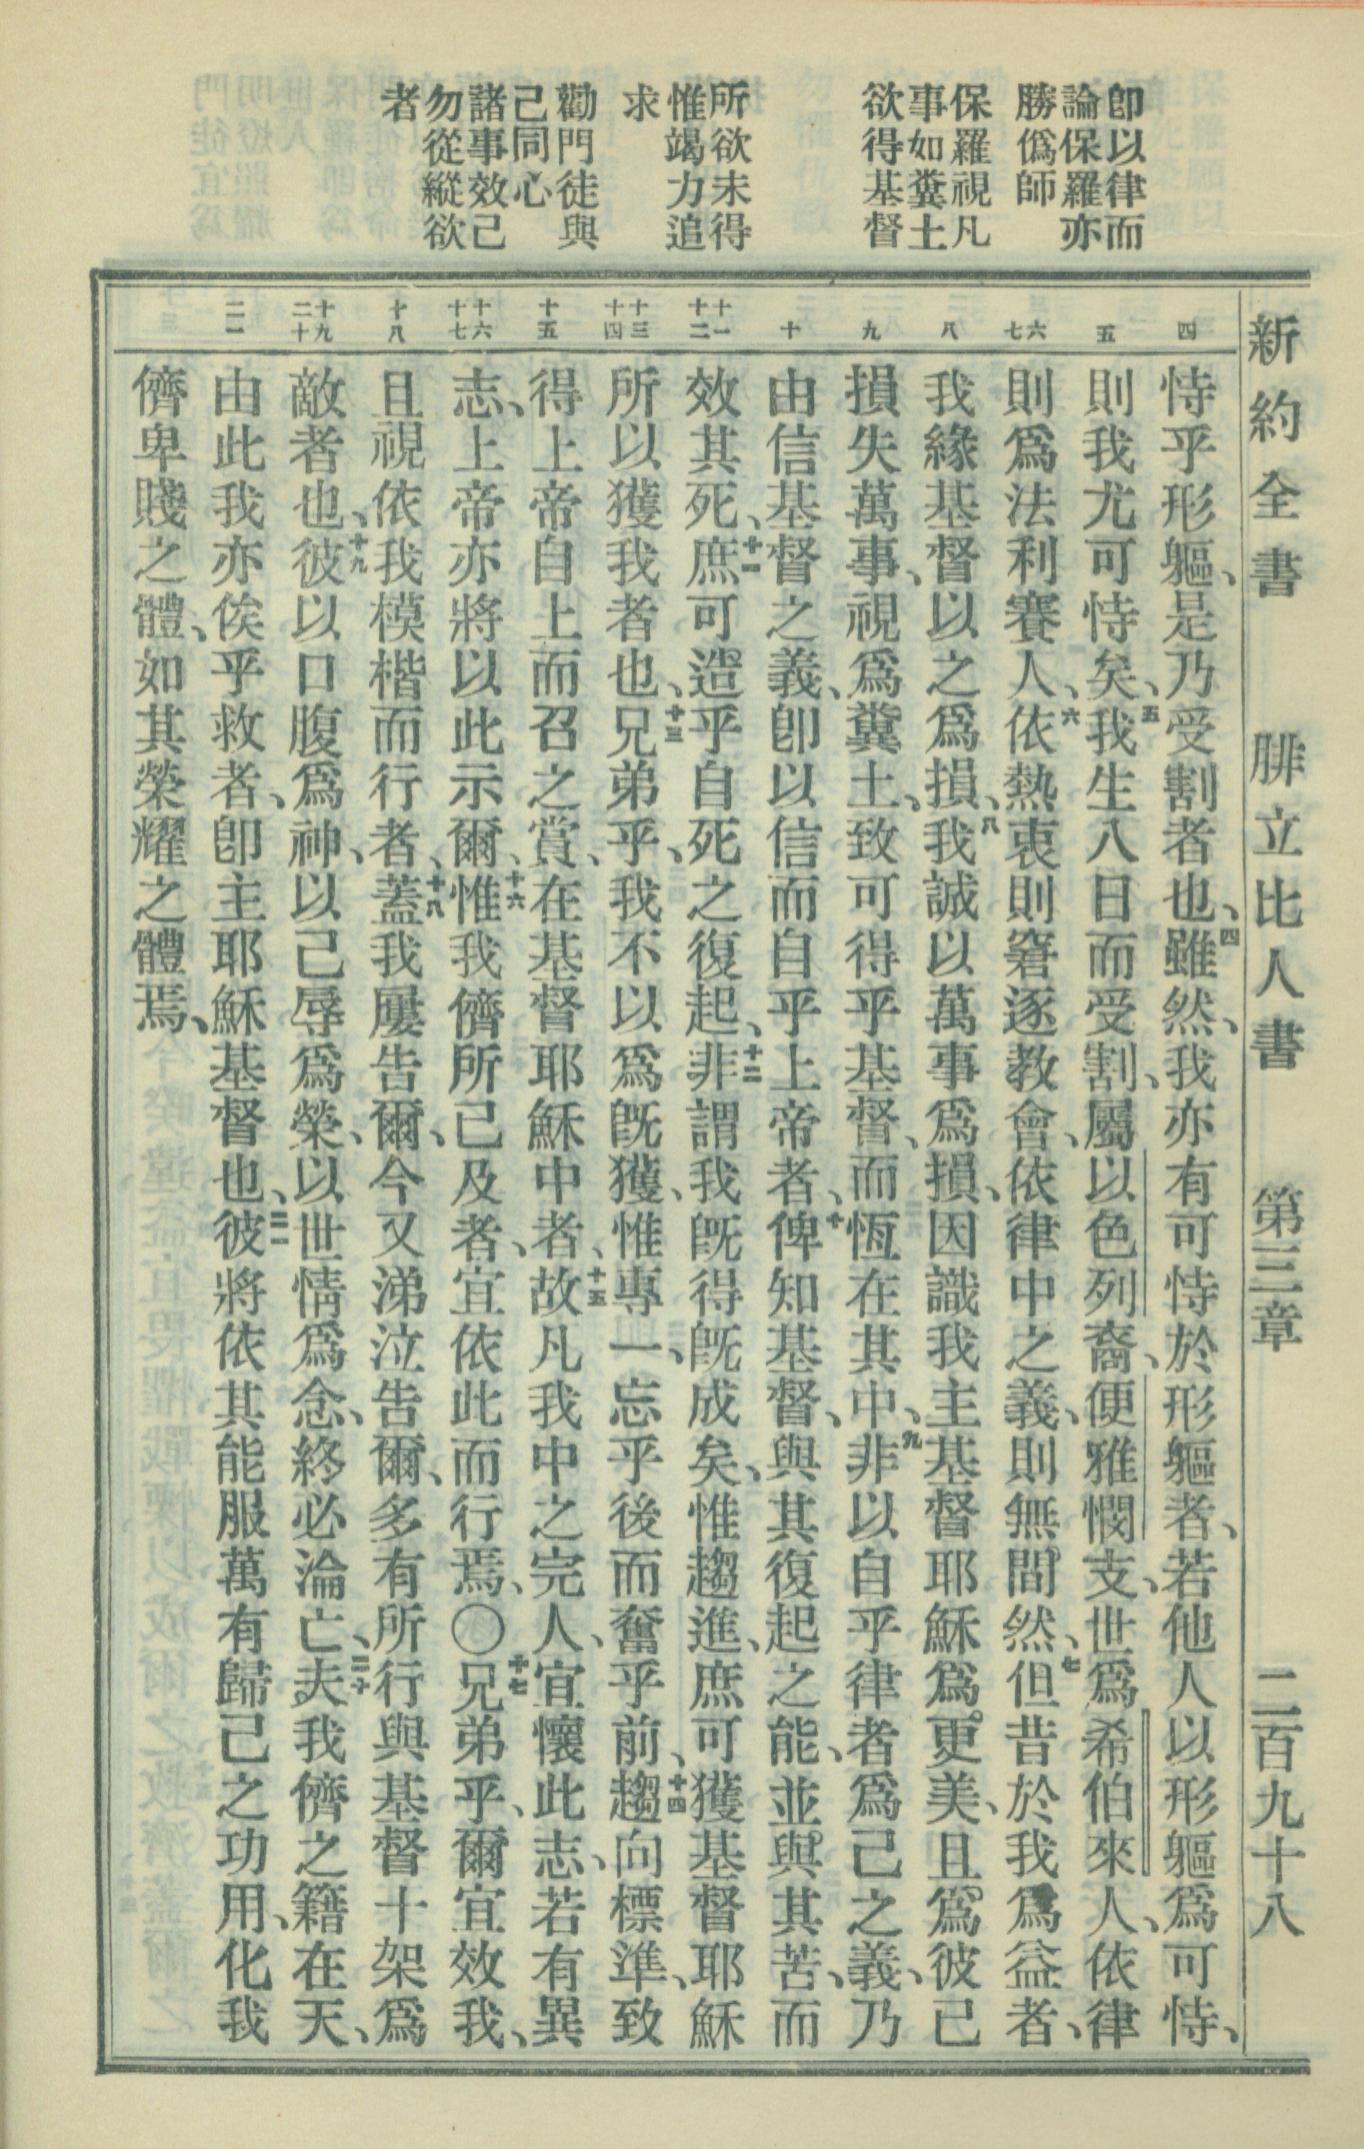 即以律而
論保羅亦
勝僞師
保羅視凡
事如糞土
欲得基督
所欲未得
惟竭力追
求
勸門徒與
己同心
諸事效己
勿從縱欲
者
新約全書 腓立比人書 第三章 二百九十八
四
五
六
七
八
九
十
十一
十二
十三
十四
十五
十六
十七
十八
十九
二十
二一
恃乎形軀、是乃受割者也、四雖然、我亦有可恃於形軀者、若他人以形軀爲可恃、
則我尤可恃矣、五我生八日而受割、屬以色列裔、便雅憫支、世爲希伯來人、依律
則爲法利賽人、六依熱衷則窘逐教會、依律中之義、則無間然、七但昔於我爲益者、
我緣基督以之爲損、八我誠以萬事爲損、因識我主基督耶穌爲更美、且爲彼已
損失萬事、視爲糞土、致可得乎基督、而恆在其中、九非以自乎律者爲己之義、乃
由信基督之義、卽以信而自乎上帝者、十俾知基督、與其復起之能、並與其苦、而
效其死、十一庶可造乎自死之復起、十二非謂我旣得旣成矣、惟趨進、庶可獲基督耶穌
所以獲我者也、十三兄弟乎、我不以爲旣獲、惟專一、忘乎後而奮乎前、十四趨向標準、致
得上帝自上而召之賞、在基督耶穌中者、十五故凡我中之完人、宜懷此志、若有異
志、上帝亦將以此示爾、十六惟我儕所已及者、宜依此而行焉、〇十七兄弟乎、爾宜效我、
且視依我模楷而行者、十八蓋我屢告爾、今又涕泣告爾、多有所行與基督十架爲
敵者也、十九彼以口腹爲神、以己辱爲榮、以世情爲念、終必淪亡、二十夫我儕之籍在天、
由此我亦俟乎救者、卽主耶穌基督也、二一彼將依其能服萬有歸己之功用、化我
儕卑賤之體、如其榮耀之體焉、